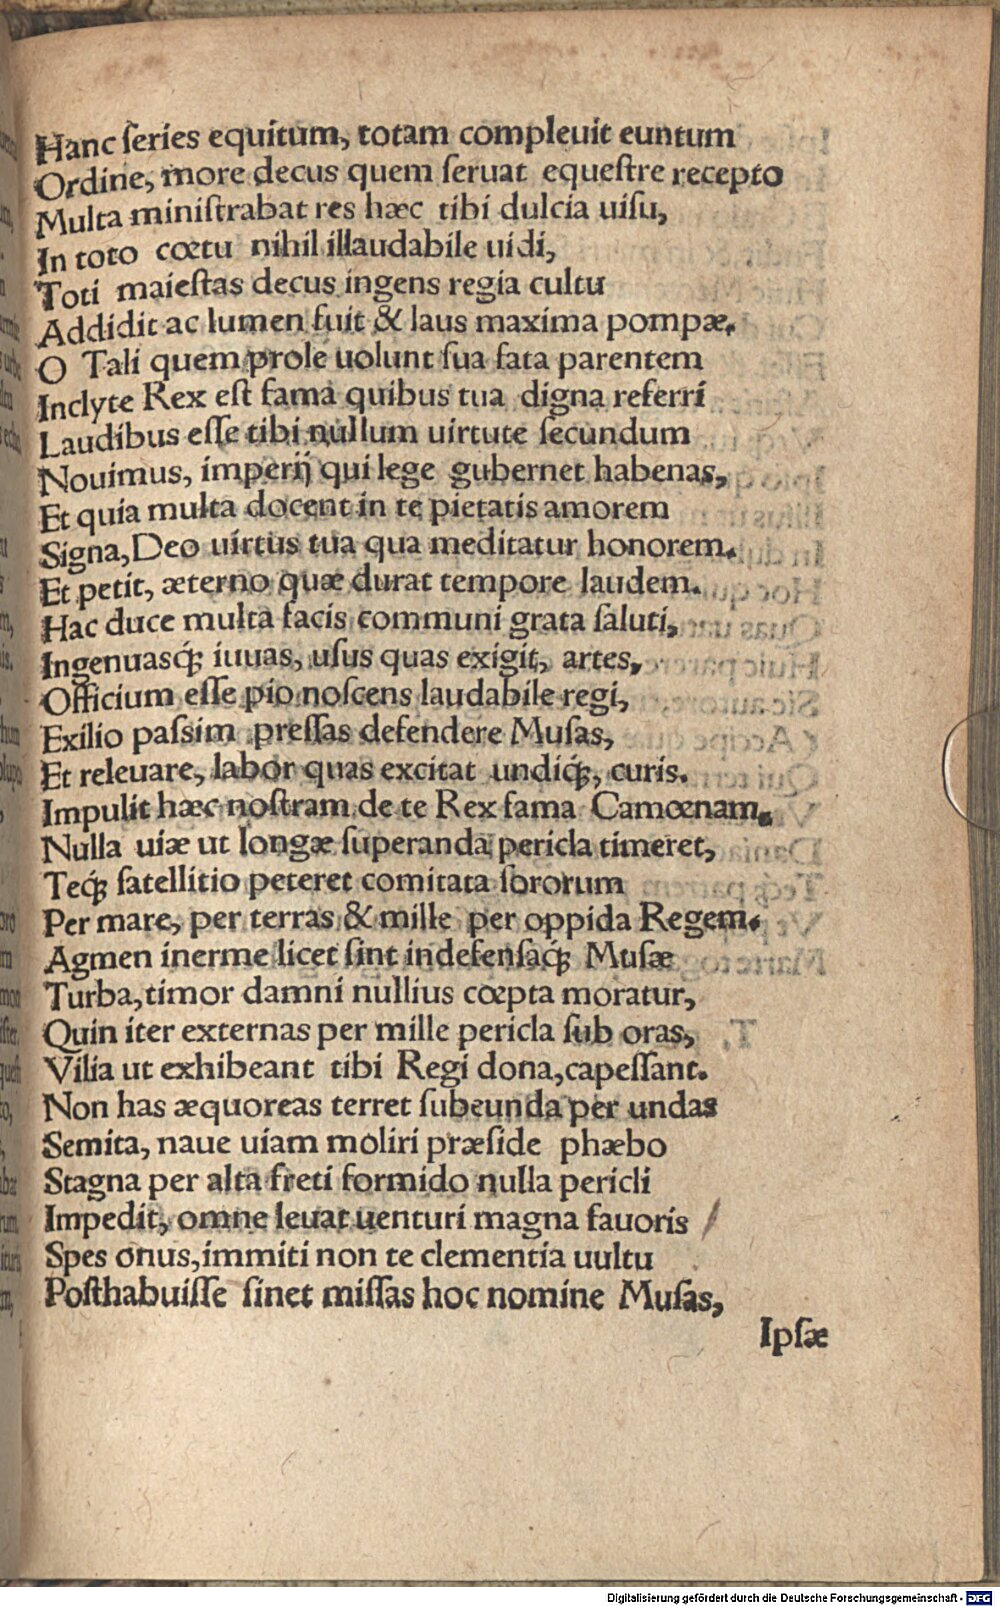 Hanc ſeries equitum, totam compleuit euntum
Ordine, more decus quem ſeruat equeſtre recepto
Multa miniſtrabat res hæc tibi dulcia uiſu,
In toto cœtu nihil illaudabile uidi,
Toti maieſtas decus ingens regia cultu
Addidit ac lumen fuit & laus maxima pompæ.
O Tali quem prole uolunt ſua fata parentem
Inclyte Rex eſt fama quibus tua digna referri
Laudibus eſſe tibi nullum uirtute ſecundum
Nouimus, imperij qui lege gubernet habenas,
Et quia multa docent in te pietatis amorem
Signa, Deo uirtus tua qua meditatur honorem.
Et petit, æterno quæ durat tempore laudem.
Hac duce multa facis communi grata ſaluti,
Ingenuasq́; iuuas, uſus quas exigit, artes,
Officium eſſe pio noſcens laudabile regi,
Exilio paſsim preſſas defendere Muſas,
Et releuare, labor quas excitat undiq́;, curis.
Impulit hæc noſtram de te Rex fama Camœnam,
Nulla uiæ ut longæ ſuperanda pericla timeret,
Teq́; ſatellitio peteret comitata ſororum
Per mare, per terras & mille per oppida Regem.
Agmen inerme licet ſint indefenſaq́; Muſæ
Turba, timor damni nullius cœpta moratur,
Quin iter externas per mille pericla ſub oras,
Vilia ut exhibeant tibi Regi dona, capeſſant.
Non has æquoreas terret ſubeunda per undas
Semita, naue uiam moliri præſide phæbo
Stagna per alta freti formido nulla pericli
Impedit, omne leuat uenturi magna fauoris /
Spes onus, immiti non te clementia uultu
Poſthabuiſſe ſinet miſſas hoc nomine Muſas,
Ipſæ
Digitalisierung gefördert durch die Deutsche Forschungsgemeinschaft - DFG